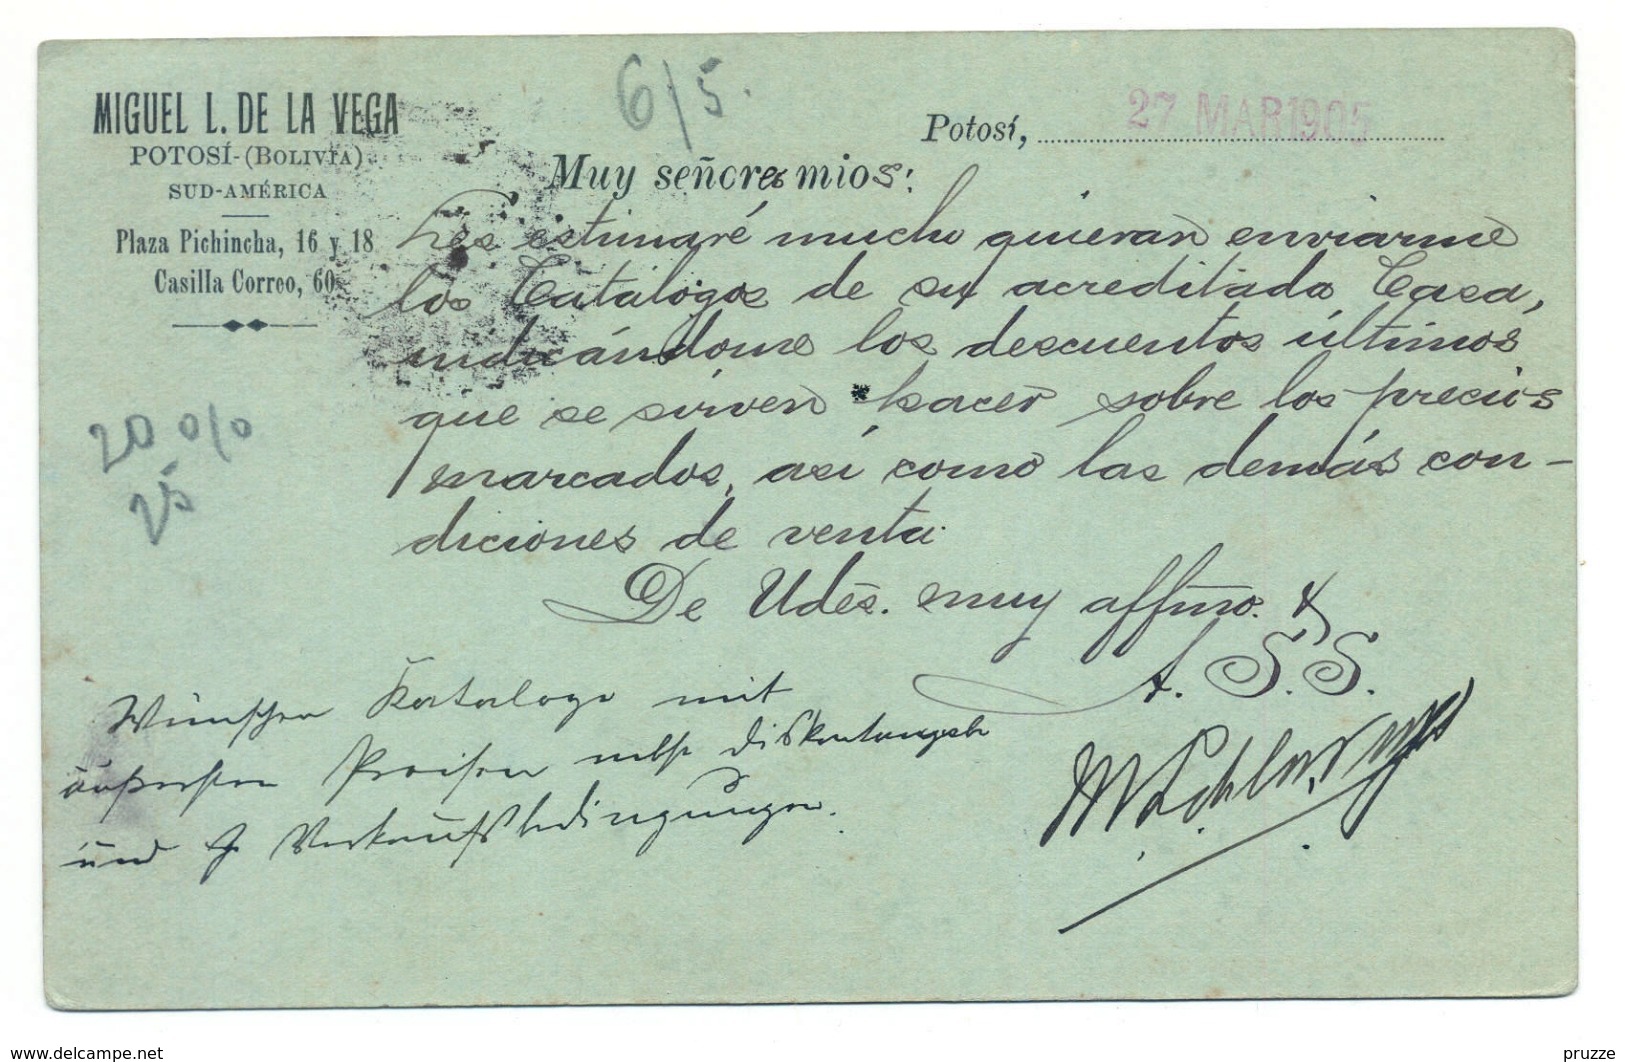 MIGUEL L. DE LA VEGA
POTOSÍ-(BOLIVIA)
SUD-AMÉRICA
Plaza Pichincha, 16 y 18
Casilla Correo, 60
6/5.
Potosí, 27 MAR 1905
Muy señores mios:
Les estimaré mucho quieran enviarme
los Catálogos de su acreditada Casa,
indicándome los descuentos últimos
que se sirven hacer sobre los precios
marcados, así como las demás con-
diciones de venta.
De Udes. muy affmo. &
A. S. S.
20 %
25
Wünschen Kataloge mit
äußersten Preisen nebst Diskontangabe
und Verkaufsbedingungen.
www.delcampe.net
pruzze